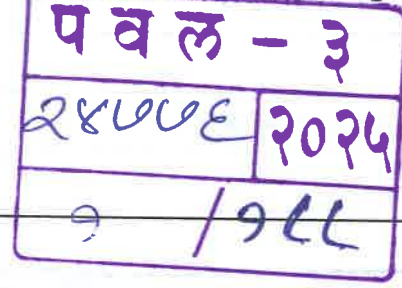 पवल - ३
२४७७६ २०२५
१ / १८८